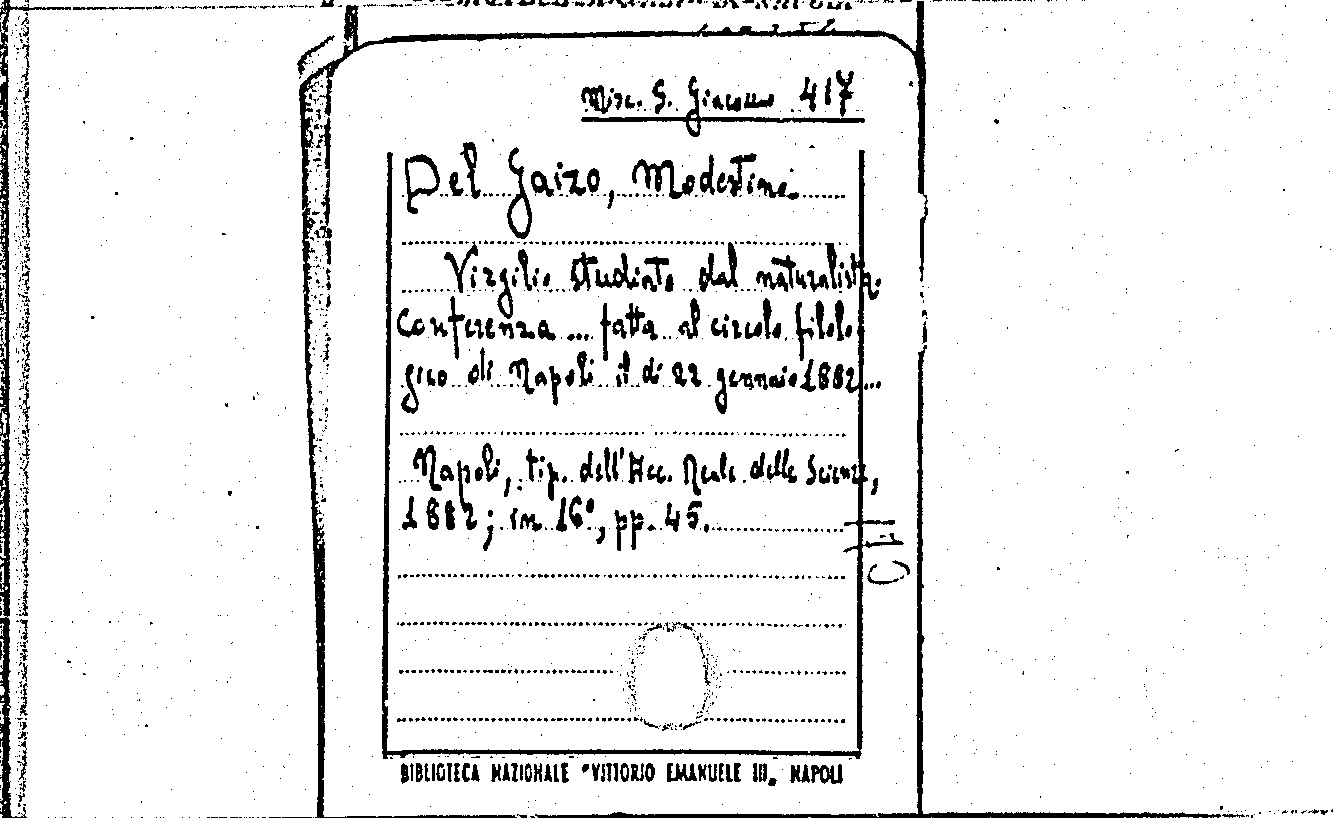 Misc. S. Giacomo 417
Del Gaizo, Modestino.
Virgilio studiato dal naturalista.
Conferenza ... fatta al circolo filolo-
gico di Napoli il dì 22 gennaio 1882...
Napoli, tip. dell'Acc. Reale delle Scienze,
1882; in 16°, pp. 45.
BIBLIOTECA NAZIONALE "VITTORIO EMANUELE III„ NAPOLI